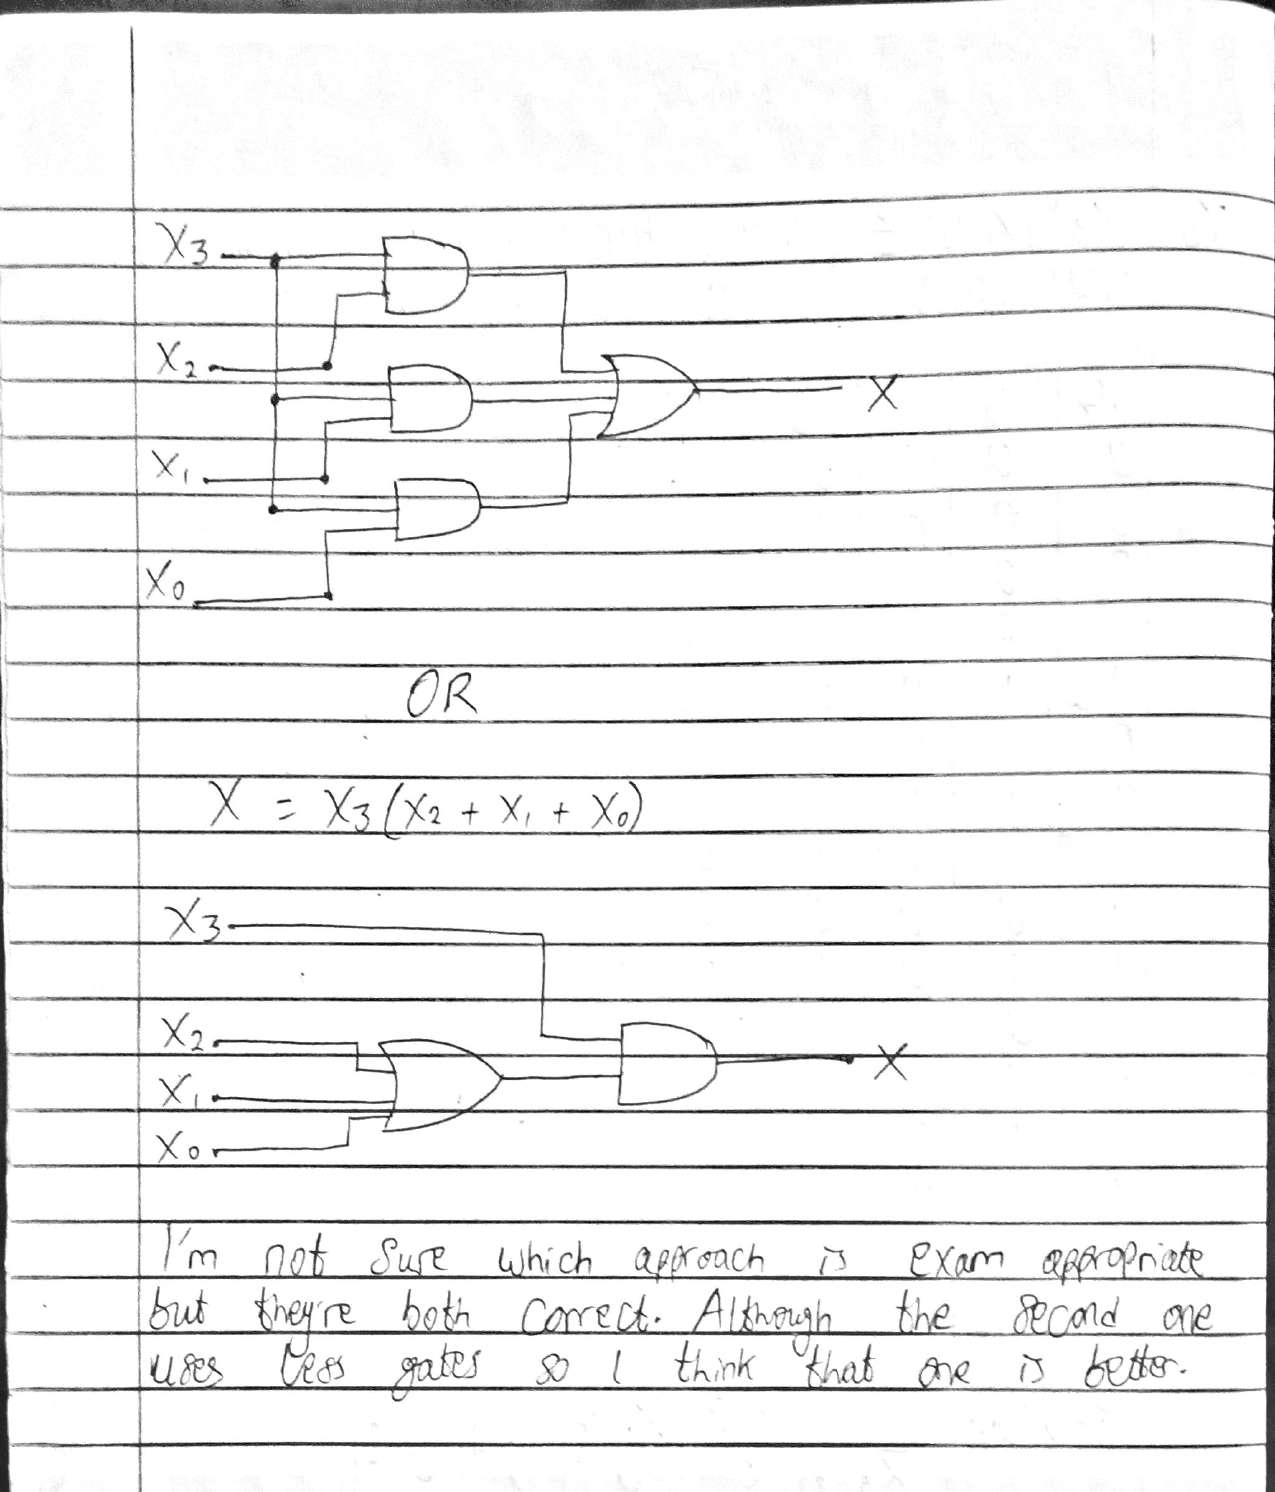 X₃
X₂
X
X₁
X₀
OR
X = X₃(X₂ + X₁ + X₀)
X₃
X₂
X
X₁
X₀
I'm not sure which approach is exam appropriate
but they're both correct. Although the second one
uses less gates so I think that one is better.